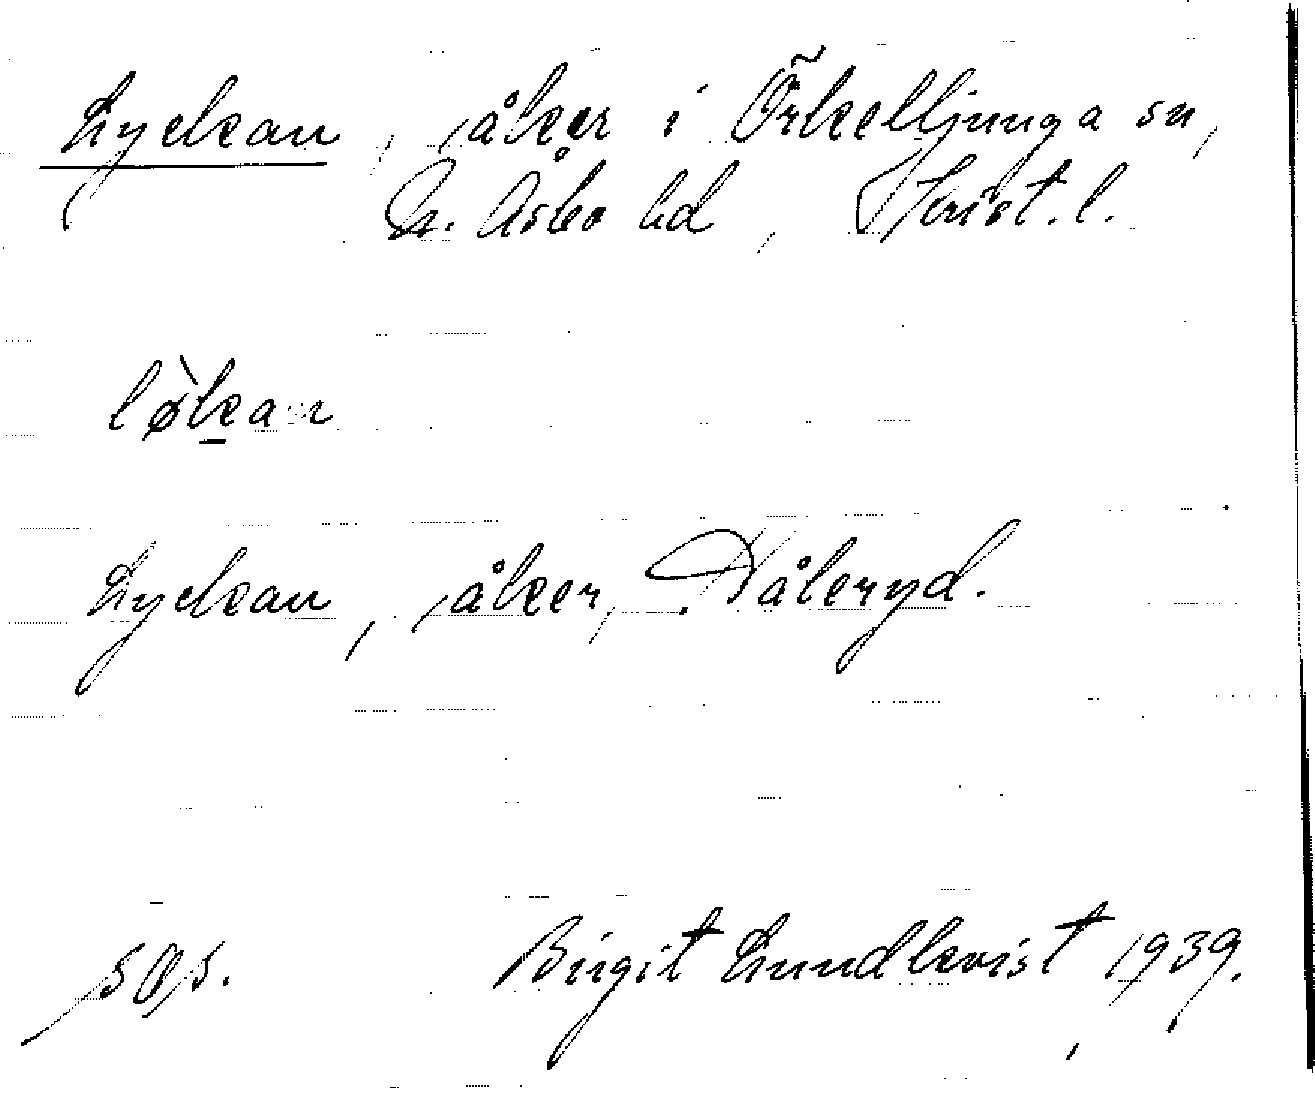 Lyckan, åker i Örkelljunga sn,
N. Åsbo hd, Krist. l.
lø̀kan
Lyckan, åker, Nåleryd.
Birgit Lundkvist 1939.